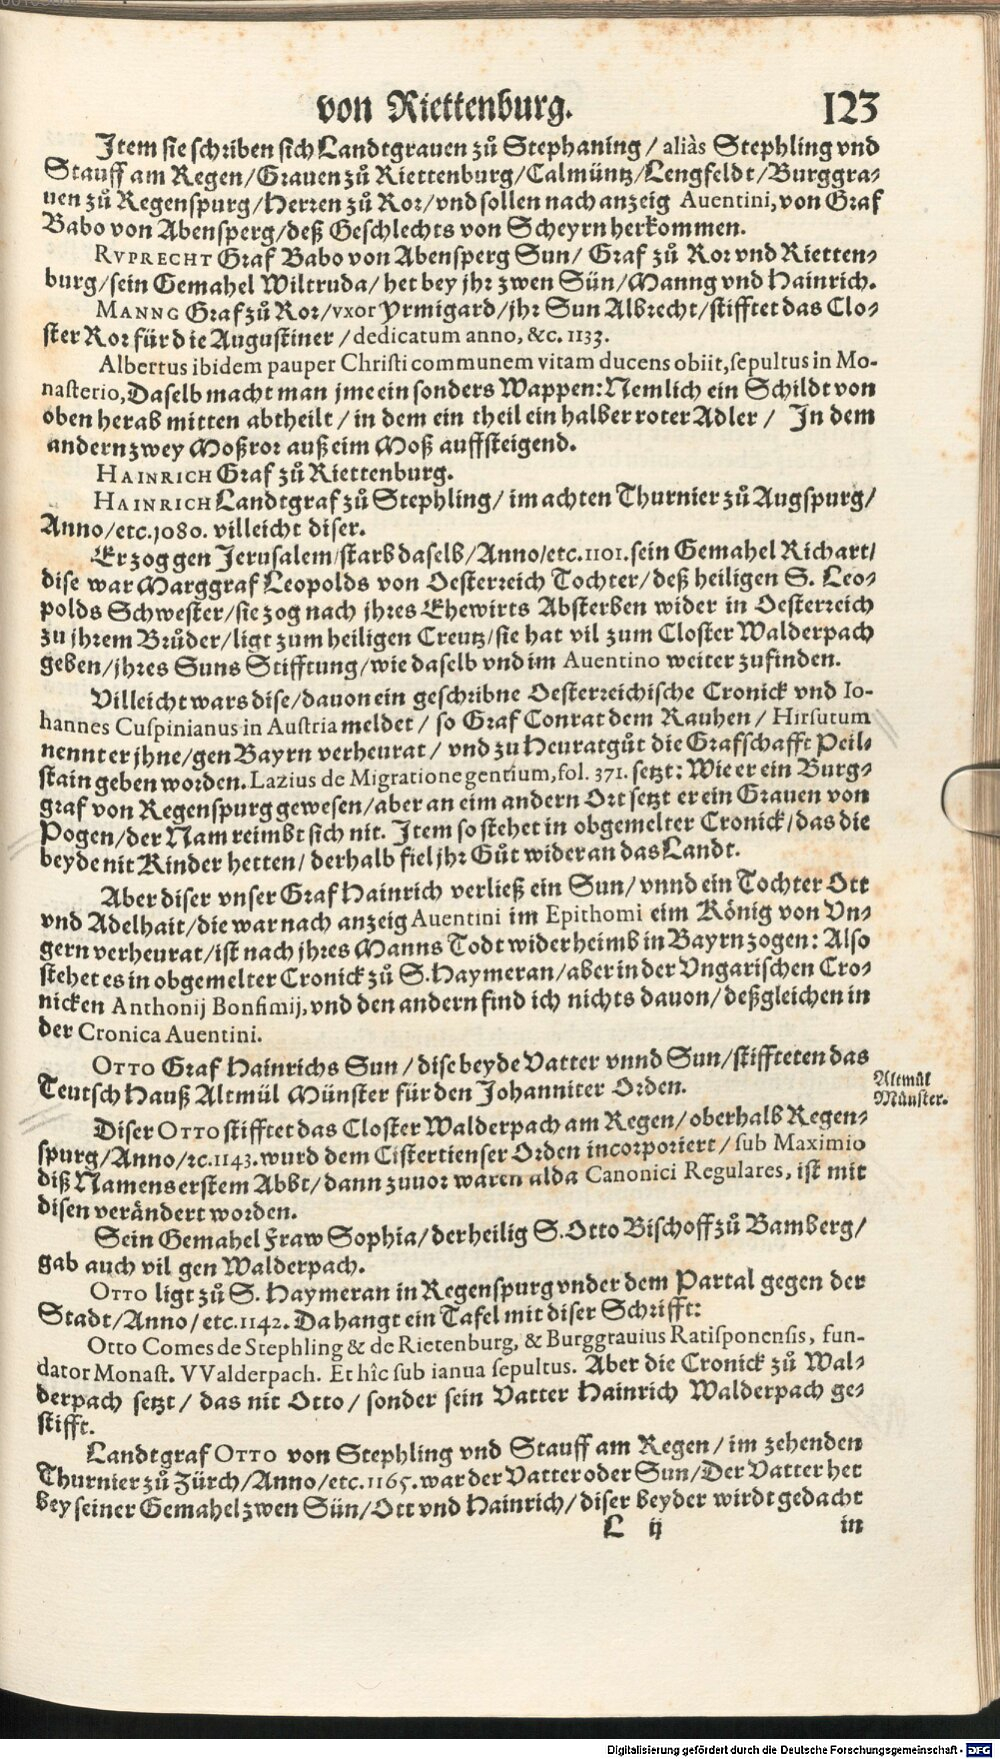 von Riettenburg. 123
Item sie schriben sich Landtgrauen zů Stephaning / aliàs Stephling vnd
Stauff am Regen/Grauen zů Riettenburg/Calmüntz/Lengfeldt/Burggra-
uen zů Regenspurg/Herren zů Ror/vnd sollen nach anzeig Auentini, von Graf
Babo von Abensperg/deß Geschlechts von Scheyrn herkommen.
RVPRECHT Graf Babo von Abensperg Sun/ Graf zů Ror vnd Rietten-
burg/sein Gemahel Wiltruda/ het bey jhr zwen Sün/Manng vnd Hainrich.
MANNG Graf zů Ror/vxor Yrmigard/jhr Sun Albrecht/stifftet das Clo-
ster Ror für die Augustiner / dedicatum anno, &c. 1133.
Albertus ibidem pauper Christi communem vitam ducens obiit, sepultus in Mo-
nasterio, Daselb macht man jme ein sonders Wappen: Nemlich ein Schildt von
oben herab mitten abtheilt / in dem ein theil ein halber roter Adler / In dem
andern zwey Moßror auß eim Moß auffsteigend.
HAINRICH Graf zů Riettenburg.
HAINRICH Landtgraf zů Stephling/ im achten Thurnier zů Augspurg/
Anno/etc.1080. villeicht diser.
Er zog gen Jerusalem/starb daselb/Anno/etc.1101.sein Gemahel Richart/
dise war Marggraf Leopolds von Oesterreich Tochter/deß heiligen S. Leo-
polds Schwester/sie zog nach jhres Ehewirts Absterben wider in Oesterreich
zu jhrem Brůder/ligt zum heiligen Creutz/sie hat vil zum Closter Walderpach
geben/jhres Suns Stifftung/wie daselb vnd im Auentino weiter zufinden.
Villeicht wars dise/dauon ein geschribne Oesterreichische Cronick vnd Io-
hannes Cuspinianus in Austria meldet / so Graf Conrat dem Rauhen / Hirsutum
nennt er jhne/gen Bayrn verheurat / vnd zu Heuratgůt die Grafschafft Peil-
stain geben worden. Lazius de Migratione gentium, fol. 371. setzt: Wie er ein Burg-
graf von Regenspurg gewesen/aber an eim andern Ort setzt er ein Grauen von
Pogen/der Nam reimbt sich nit. Item so stehet in obgemelter Cronick/das die
beyde nit Kinder hetten/ derhalb fiel jhr Gůt wider an das Landt.
Aber diser vnser Graf Hainrich verließ ein Sun/ vnnd ein Tochter Ott
vnd Adelhait/die war nach anzeig Auentini im Epithomi eim König von Vn-
gern verheurat/ist nach jhres Manns Todt wider heimb in Bayrn zogen: Also
stehet es in obgemelter Cronick zů S. Haymeran/aber in der Vngarischen Cro-
nicken Anthonij Bonfimij, vnd den andern find ich nichts dauon/ deßgleichen in
der Cronica Auentini.
OTTO Graf Hainrichs Sun / dise beyde Vatter vnnd Sun/stiffteten das
Teutsch Hauß Altmül Münster für den Johanniter Orden.
Altmül
Münster.
Diser OTTO stifftet das Closter Walderpach am Regen/ oberhalb Regen-
spurg/Anno/ꝛc.1143. wurd dem Cistertienser Orden incorporiert / sub Maximio
diß Namens erstem Abbt/ dann zuuor waren alda Canonici Regulares, ist mit
disen verändert worden.
Sein Gemahel Fraw Sophia/der heilig S. Otto Bischoff zů Bamberg/
gab auch vil gen Walderpach.
OTTO ligt zů S. Haymeran in Regenspurg vnder dem Partal gegen der
Stadt/Anno/ etc.1142. Da hangt ein Tafel mit diser Schrifft:
Otto Comes de Stephling & de Rietenburg, & Burggrauius Ratisponensis, fun-
dator Monast. VValderpach. Et hîc sub ianua sepultus. Aber die Cronick zů Wal-
derpach setzt / das nit Otto / sonder sein Vatter Hainrich Walderpach ge-
stifft.
Landtgraf OTTO von Stephling vnd Stauff am Regen / im zehenden
Thurnier zů Zürch/Anno/etc.1165. war der Vatter oder Sun/Der Vatter het
bey seiner Gemahel zwen Sün/Ott vnd Hainrich/diser beyder wirdt gedacht
L ij in
Digitalisierung gefördert durch die Deutsche Forschungsgemeinschaft - DFG